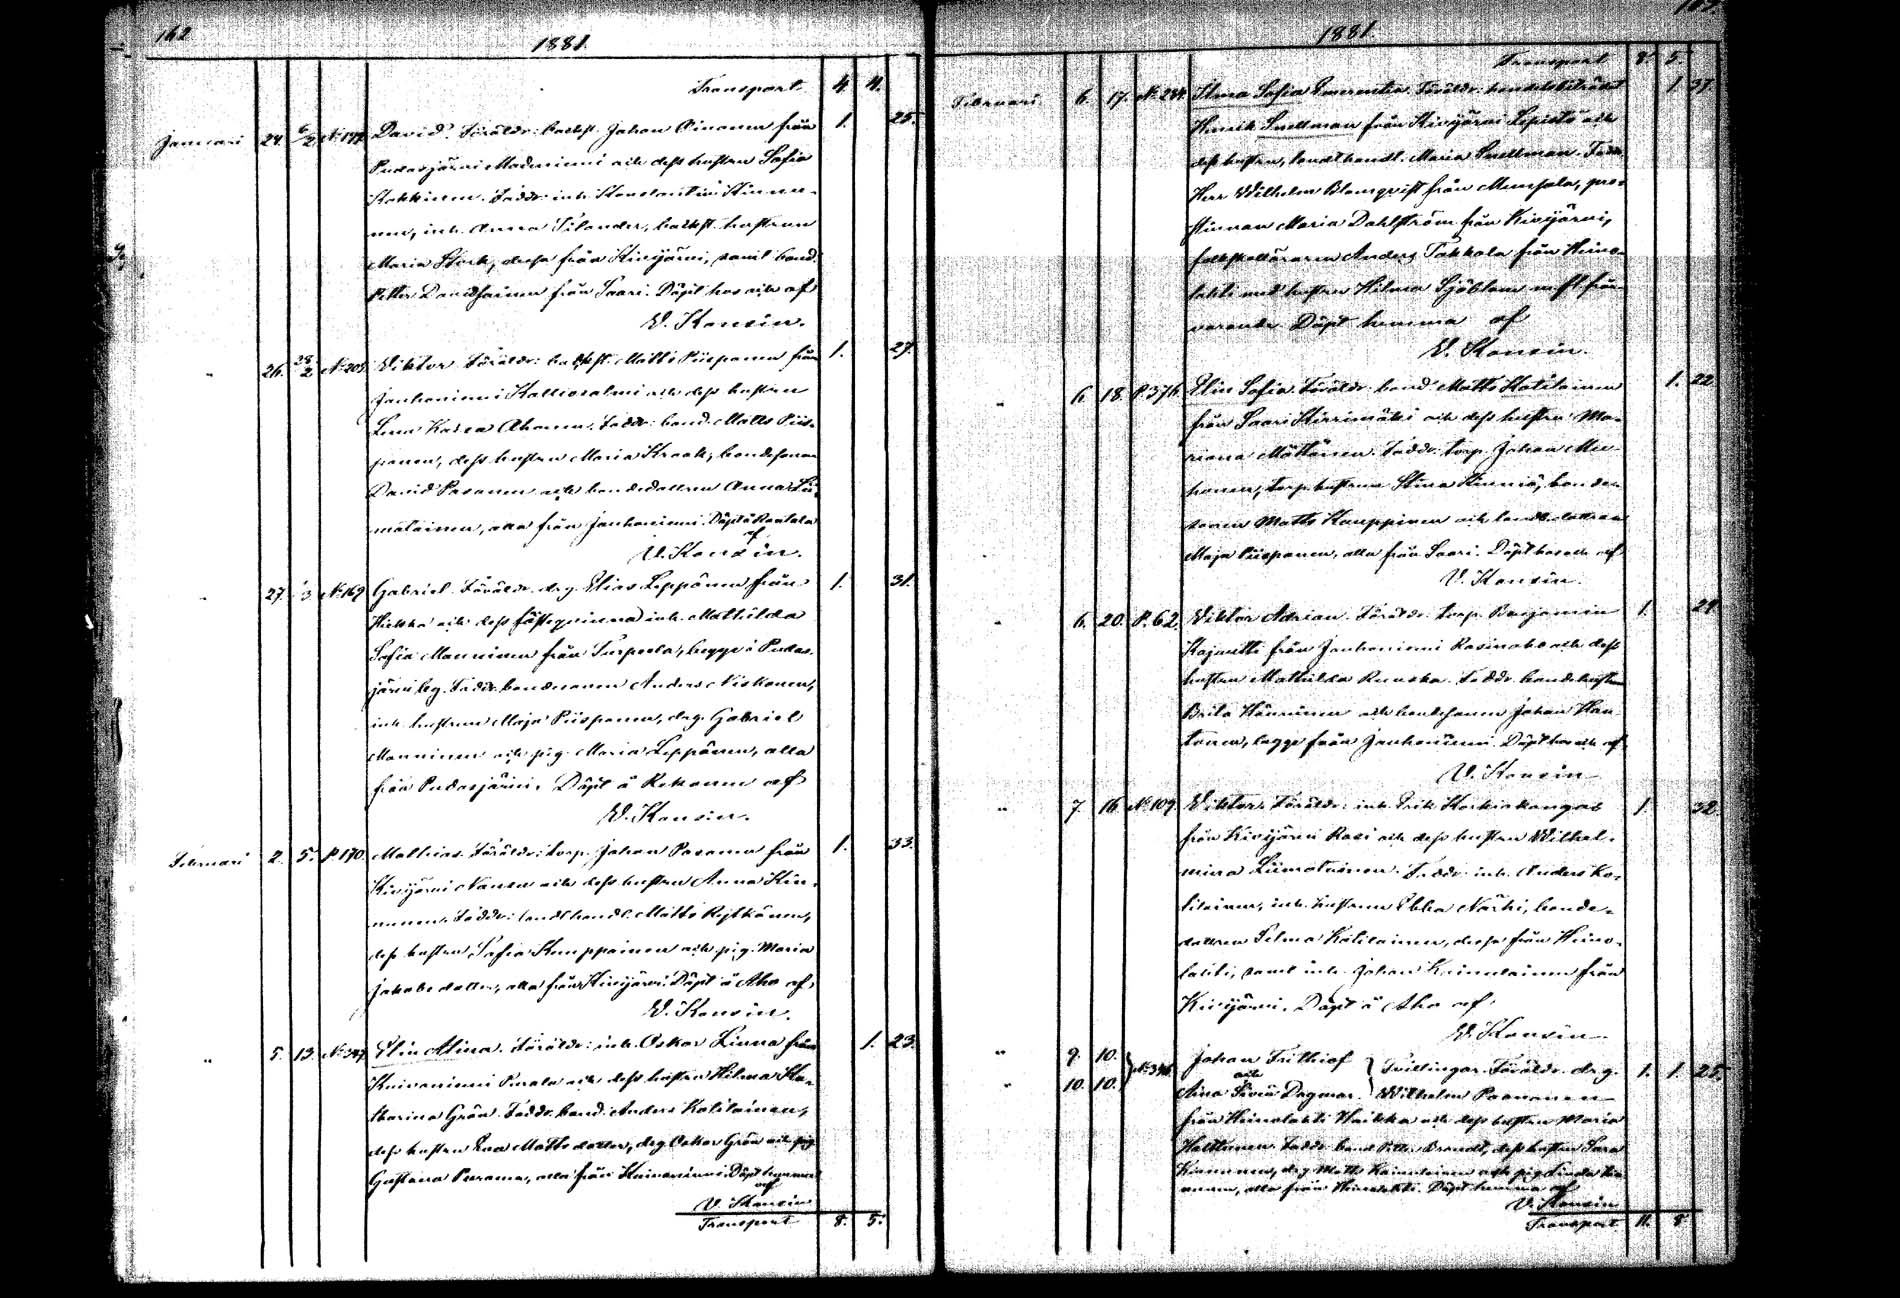 162
1881.
Transport. 4. 4.
Januari 24. 6/2 No 177 David. Föräldr: backst. Johan Ainonen från 1. 25.
Pudasjärvi Madeniemi och dess hustru Sofia
Kokkinen. Faddr: inh. Konstantin Kinnu-
nen, inh. Anna Tilander, backst. hustrun
Maria Stork, dessa från Kivijärvi, samt bond.
Petter Davidsainen från Saari. Döpt hos och af
V. Konsin.
" 26. 28/2 No 205 Viktor. Föräldr: backst. Matts Piispanen från 1. 27.
Janhoniemi Kalliosalmi och dess hustru
Lena Kaisa Ahonen. Faddr: bond. Matts Piis-
panen, dess hustru Maria Kraak, bondesonen
David Pasanen och bondedottren Anna Lii-
matainen, alla från Janhoniemi. Döpt å Rantala
af
V. Konsin.
" 27. 1/3 No 169 Gabriel. Föräldr: drg. Elias Leppänen från 1. 31.
Hiekka och dess fästeqvinna inh. Mathilda
Sofia Manninen från Turpeela, begge i Pudas-
järvi by. Faddr: bondesonen Anders Niskanen,
inh. hustrun Maja Piispanen, drg. Gabriel
Manninen och pig. Maria Leppänen, alla
från Pudasjärvi. Döpt å Rekonen af
V. Konsin.
Februari 2. 5. P. 170. Mathias. Föräldr: torp. Johan Pasanen från 1. 33.
Kivijärvi Nanen och dess hustru Anna Kin-
nunen. Faddr: landthandl. Matts Rytkönen,
dess hustru Sofia Kumppainen och pig. Maria
Jakobs dotter, alla från Kivijärvi. Döpt å Aho af
V. Konsin.
" 5. 13. No 347 Elin Alina. Föräldr: inh. Oskar Linna från 1. 23.
Kuivaniemi Purala och dess hustru Hilma Ka-
tharina Grön. Faddr: bond. Anders Kotilainen,
dess hustru Eva Matts dotter, drg. Oskar Grön och pig.
Gustava Puranen, alla från Kuivaniemi. Döpt hemma
af
V. Konsin
Transport 8. 5.
163.
1881.
Transport 8. 5.
Februari 6. 17. No 234. Ilma Sofia Emerentia. Föräldr: handelsbiträdet 1. 37.
Henrik Snellman från Kivijärvi Lepistö och
dess hustru, landthandl. Maria Snellman. Faddr:
Herr Wilhelm Blomqvist från Munsala, pro-
stinnan Maria Dahlström från Kivijärvi,
folkskolläraren Anders Takkala från Heino-
lahti med hustru Hilma Sjöblom m. fl. från-
varande. Döpt hemma af
V. Konsin.
" 6. 18. P. 376. Elin Sofia. Föräldr: bond. Matts Kotilainen 1. 22.
från Saari Kirrinmäki och dess hustru Ma-
riana Möttönen. Faddr: torp. Johan Mu-
honen, torp. hustrun Stina Kinniä, bonde-
sonen Matts Kauppinen och bondedottren
Maja Piispanen, alla från Saari. Döpt hos och af
V. Konsin.
" 6. 20. P. 62. Viktor Adrian. Föräldr: torp. Benjamin 1. 29.
Kajaretti från Janhoniemi Rasinaho och dess
hustru Mathilda Ruuska. Faddr: bondehustrun
Brita Hänninen och bondesonen Johan Hau-
tanen, begge från Janhoniemi. Döpt hos och af
V. Konsin
" 7. 16. No 109. Viktor. Föräldr: inh. Erik Korkiakangas 1. 32.
från Kivijärvi Rasi och dess hustru Wilhel-
mina Liimatainen. Faddr: inh. Anders Ko-
tilainen, inh. hustrun Ebba Närhi, bonde-
dottren Selma Kotilainen, dessa från Heino-
lahti, samt inh. Johan Kainulainen från
Kivijärvi. Döpt å Aho af
V. Konsin
" 9. 10. Johan Frithiof
" 10. 10. No 346 och Aina Sivia Dagmar. Tvillingar. Föräldr: drg. 1. 1. 25.
Wilhelm Paananen
från Heinolahti Haikka och dess hustru Maria
Halttunen. Faddr: bond. Petter Brandt, dess hustru Sara
Kinnunen, drg. Matts Kainulainen och pig. Linda Kin-
nunen, alla från Heinolahti. Döpt hemma af
V. Konsin
Transport 11. 8.